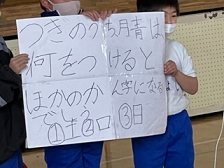 つぎのうち月青は
何をつけると
ほかのか人字になるで
しょう
①キ②口③日